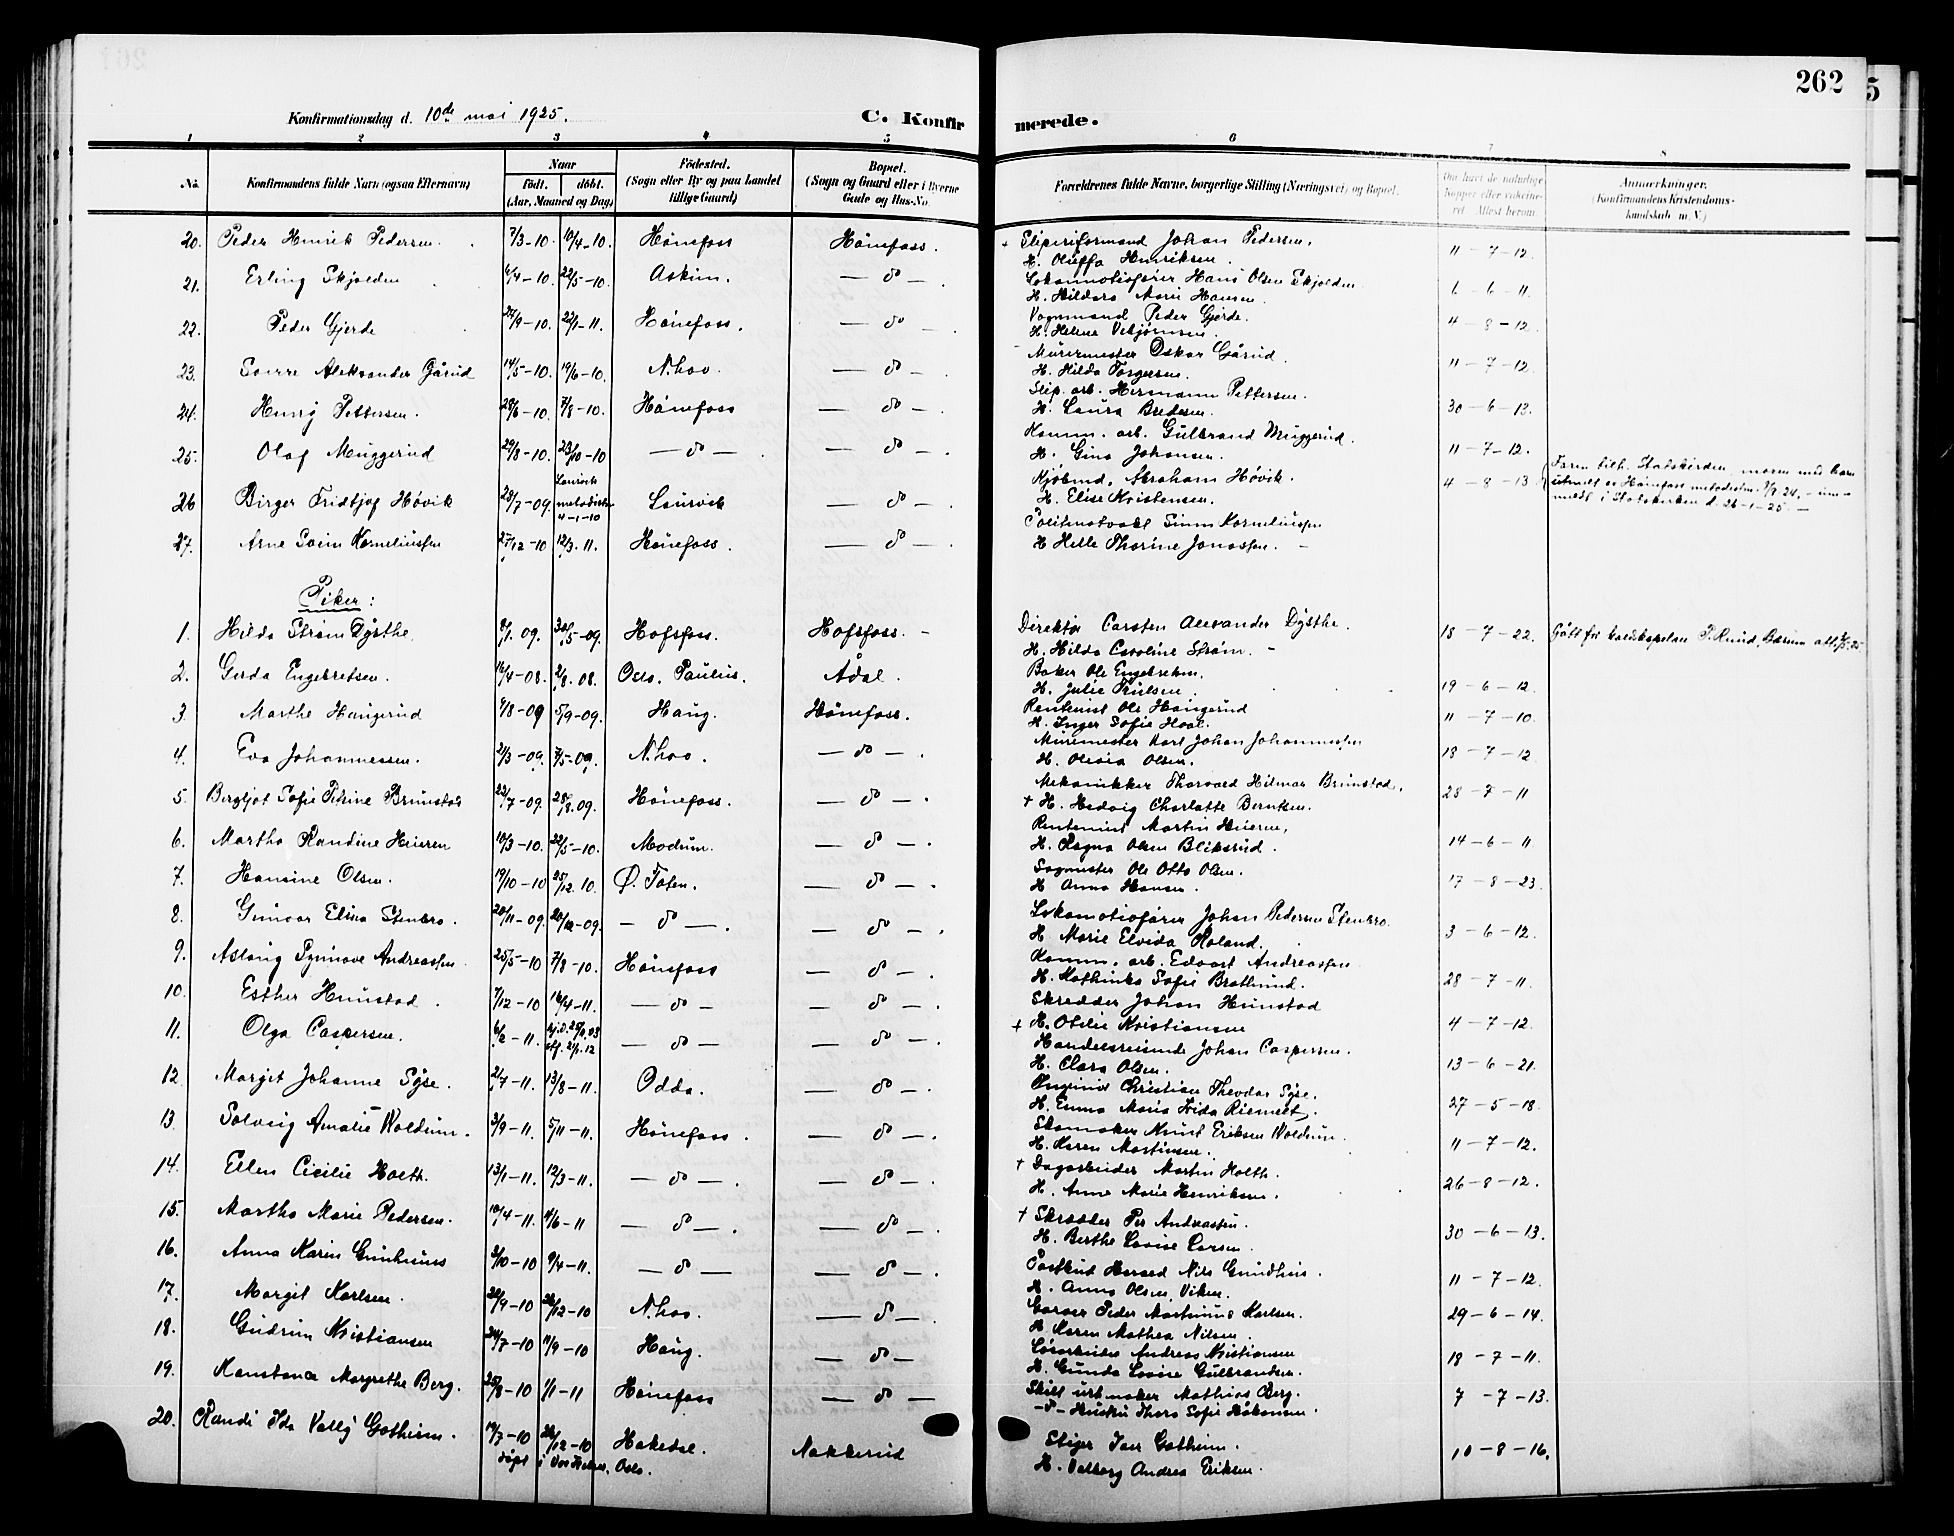 262
Konfirmationsdag d. 10de mai 1925.
C. Konfirmerede.
1 2 3 4 5 6 7 8
No. Konfirmandens fulde Navn (ogsaa Efternavn) Naar født. døbt. (Aar, Maaned og Dag) Fødested. (Sogn eller By og paa Landet tillige Gaard) Bopæl. (Sogn og Gaard eller i Byerne Gade og Hus-No. Forældrenes fulde Navne, borgerlige Stilling (Næringsvei) og Bopæl. Om havt de naturlige Kopper eller vakcineret. Attest herom. Anmærkninger. (Konfirmandens Kristendomskundskab m. V.)
20. Peder Henrik Pedersen. 7/3-10. 10/4-10. Hønefoss Hønefoss. + Sliperiformand Johan Pedersen. H. Oluffa Henriksen. 11-7-12.
21. Erling Skjolden 6/4-10. 22/5-10. Askim. -do- Lokomotivfører Hans Olsen Skjolden H. Hildora Marie Hansen. 6-6-11.
22. Peder Gjerde 27/9-10. 22/1-11. Hønefoss. -do- Vognmand Peder Gjerde. H. Helene Vebjørnsen. 4-8-12.
23. Sverre Aleksander Gårud 14/5-10. 19/6-10. N.hov. -do- Murermester Oskar Gårud. H. Hilda Torgersen. 11-7-12.
24. Henry Pettersen. 28/6-10. 7/8-10. Hønefoss -do- Slip. arb. Hermann Pettersen. H. Laura Bredesen. 30-6-13.
25. Olaf Muggerud 29/8-10. 23/10-10 -do- -do- Komm. arb. Gulbrand Muggerud. H. Gina Johansen. 11-7-12.
26 Birger Fridtjof Høvik 28/7-09. Laurvik metodistk. 4-1-10 Laurvik -do- Kjøbmd. Abraham Høvik. H. Elise Kristensen. 4-8-13 Faren tilh. Statskirken, moren med barn utmeldt av Hønefoss metodistm. 1/9 24, - inmeldt i Statskirken d. 26-1-25.
27. Arne Svein Korneliussen 27/12-10 12/3. 11. Hønefoss. -do- Politimotvakt Simon Korneliussen H. Helle Thorine Jonassen.
Piker:
1. Hilda Strøm Dysthe. 8/1. 09. 30/5-09. Hofsfoss. Hofsfoss. Direktør Carsten Alexander Dysthe. H. Hilda Caroline Strøm. 18-7-22.
2. Gerda Engebretsen. 16/4-08. 2/8. 08. Oslo, Paulus. Ådal. Baker Ole Engebretsen. H. Julie Trulsen. 19-6-12.
3. Marthe Haugerud 9/8-09 5/9-09. Haug. Hønefoss. Rentenist Ole Haugerud H. Inger Sofie Hval. 11-7-10.
4. Eva Johannessen. 21/3-09. 7/5-09. N.hov. -do- Murermester Karl Johan Johannessen H. Olivia Olsen. 18-7-12
5. Bergljot Sofie Petrine Brunstad 22/7-09. 28/8.09. Hønefoss. -do- Mekanikker Thorvard Hilmar Brunstad. + H. Hedvig Charlotte Berntsen. 28-7-11
6. Martha Randine Hieren 10/3-10. 22/5-10. Modum. -do- Rentenist Martin Hieren. H. Ragna Olsen Bliksrud. 14-6-11
7. Hansine Olsen. 19/10-10 25/12. 10. Ø. Toten. -do- Sagmester Ole Otto Olsen. H. Anna Hansen. 17-8-23.
8. Gunvor Elina Stenbro. 20/11-09. 26/12-09. -do- -do- Lokomotivfører Johan Pedersen Stenbro. H. Marie Elvida Roland. 3-6-12.
9. Aslaug Synnøve Andreassen 25/5-10 7/8-10. Hønefoss -do- Komm. arb. Edvart Andreassen H. Kathinka Sofie Bratlund. 28-7-11.
10. Esther Hunstad. 7/12-10 16/4-11. -do- -do- Skredder Johan Hunstad + H. Otelie Kristiansen 4-7-12.
11. Olga Caspersen. 6/2-11. -do- -do- Handelsreisende Johan Caspersen. H. Clara Olsen. 13-6-21.
12. Margit Johanne Syse. 2/7-11. 13/8-11. Odda. -do- Ingeniør Christian Theodor Syse. H. Emma Maria Frida Riemelt. 27-5-18.
13. Solveig Amalie Woldum. 3/9-11. 5/11-11. Hønefoss. -do- Skomaker Knut Eriksen Woldum. H. Karen Martinsen. 11-7-12.
14. Ellen Cicilie Holth. 13/1-11. 12/3-11. -do- -do- + Dagarbeider Martin Holth. H. Anne Marie Henriksen. 26-8-12.
15. Martha Marie Pedersen. 10/4-11. 11/6-11 -do- -do- + Skrædder Per Andreassen. H. Berthe Lovise Larsen. 30-6-13.
16. Anna Karin Gundhuus 3/10-10 9/4-11. -do- -do- Postbud Harald Nils Gundhus. H. Anna Olsen Viken. 11-7-12.
17. Margit Karlsen. 20/9-10 26/12-10 N.hov -do- Garver Peder Martinius Karlsen. H. Karen Mathea Nilsen. 29-6-14.
18. Gudrun Kristiansen 24/7-10 11/9-10 Haug. -do- Løsarbeider Andreas Kristiansen H. Gunda Lovise Gulbrandsen. 18-7-11.
19. Konstanse Margrethe Berg. 25/8-10 1/1-11 Hønefoss -do- Mathias Berg. Hustru Thora Sofie Håkonsen. 7-7-13.
20. Randi Ida Vally Gotheim. 19/7-10 26/12-10 døpt i Vor Frelser, Oslo. Hakedal. Nakkerud Stiger Iver Gotheim. H. Valborg Andrea Eriksen. 10-8-16.